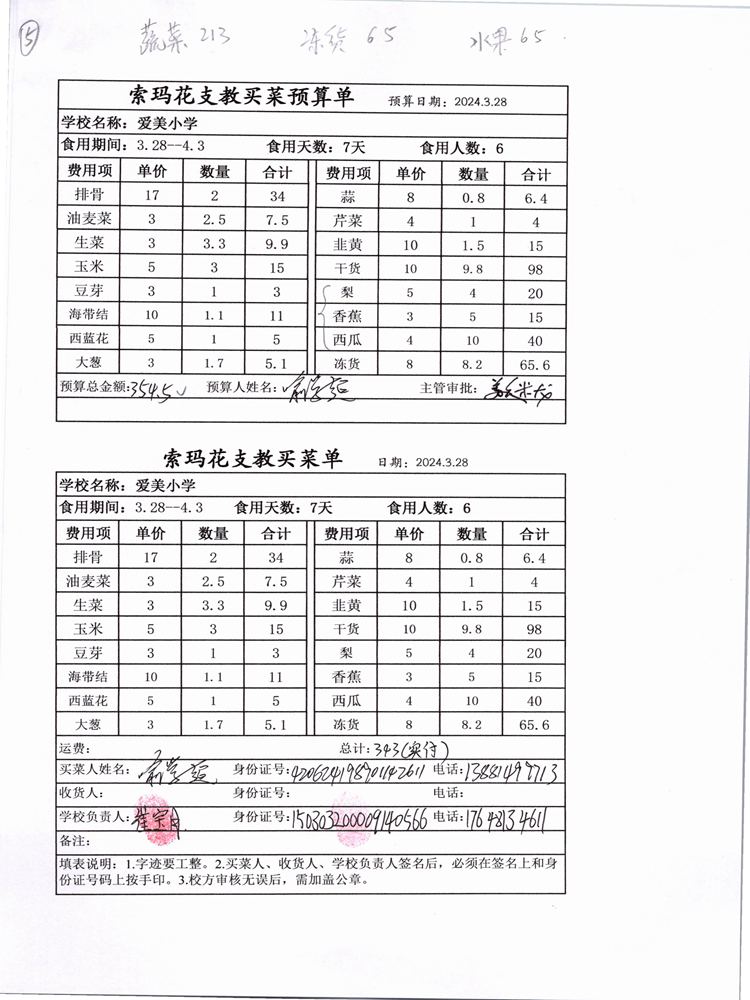 ⑤ 蔬菜 213 冻货 65 水果 65
索玛花支教买菜预算单 预算日期：2024.3.28
学校名称：爱美小学
食用期间：3.28--4.3 食用天数：7天 食用人数：6
费用项 单价 数量 合计 费用项 单价 数量 合计
排骨 17 2 34 蒜 8 0.8 6.4
油麦菜 3 2.5 7.5 芹菜 4 1 4
生菜 3 3.3 9.9 韭黄 10 1.5 15
玉米 5 3 15 干货 10 9.8 98
豆芽 3 1 3 梨 5 4 20
海带结 10 1.1 11 香蕉 3 5 15
西蓝花 5 1 5 西瓜 4 10 40
大葱 3 1.7 5.1 冻货 8 8.2 65.6
预算总金额：354.5 预算人姓名： 主管审批：
索玛花支教买菜单 日期：2024.3.28
学校名称：爱美小学
食用期间：3.28--4.3 食用天数：7天 食用人数：6
费用项 单价 数量 合计 费用项 单价 数量 合计
排骨 17 2 34 蒜 8 0.8 6.4
油麦菜 3 2.5 7.5 芹菜 4 1 4
生菜 3 3.3 9.9 韭黄 10 1.5 15
玉米 5 3 15 干货 10 9.8 98
豆芽 3 1 3 梨 5 4 20
海带结 10 1.1 11 香蕉 3 5 15
西蓝花 5 1 5 西瓜 4 10 40
大葱 3 1.7 5.1 冻货 8 8.2 65.6
运费： 总计：343(实付)
买菜人姓名： 身份证号：420624198901142611 电话：13881499713
收货人： 身份证号： 电话：
学校负责人：崔宗月 身份证号：150303200009140566 电话：17648134611
备注：
填表说明：1.字迹要工整。2.买菜人、收货人、学校负责人签名后，必须在签名上和身
份证号码上按手印。3.校方审核无误后，需加盖公章。